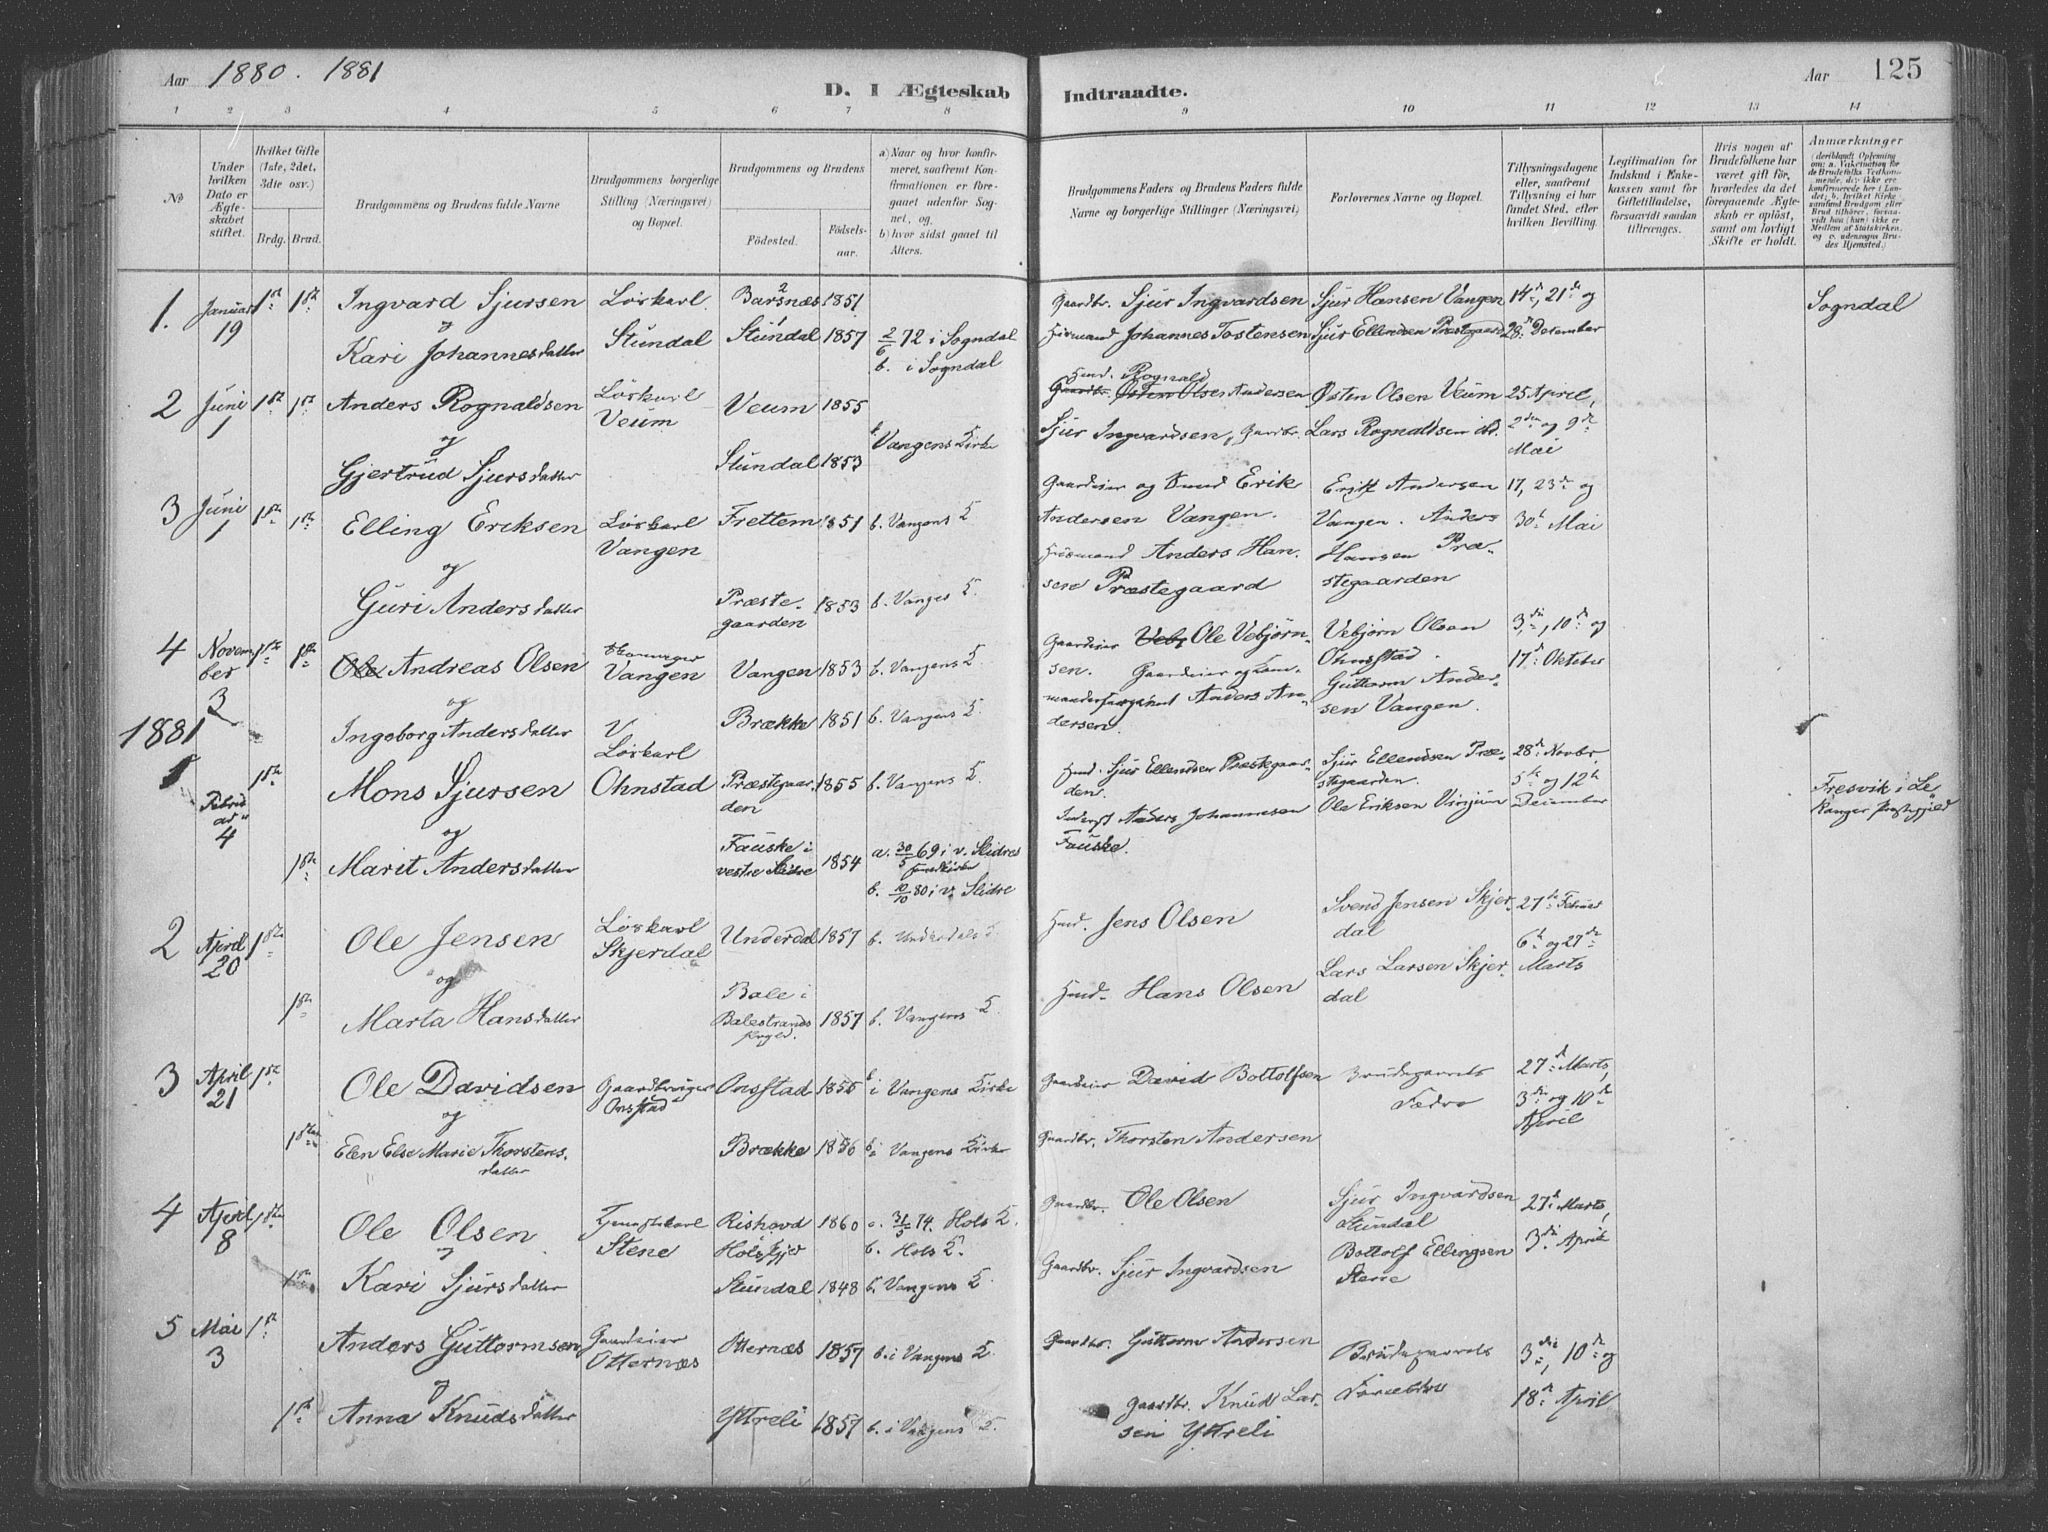 Aar 1880. 1881
D. I Ægteskab Indtraadte.
Aar 125
1 2 3 4 5 6 7 8 9 10 11 12 13 14
No
Under hvilken Dato er Ægteskabet stiftet.
Hvilket Gifte (1ste, 2det, 3die osv.)
Brdg. Brud.
Brudgommens og Brudens fulde Navne
Brudgommens borgerlige Stilling (Næringsvei) og Bopæl.
Brudgommens og Brudens
Fødested. Fødselsaar.
a) Naar og hvor konfirmeret, saafremt Konfirmationen er foregaaet udenfor Sognet, og
b) hvor sidst gaaet til Alters.
Brudgommens Faders og Brudens Faders fulde Navne og borgerlige Stillinger (Næringsvei)
Forlovernes Navne og Bopæl.
Tillysningsdagene eller, saafremt Tillysning ei har fundet Sted, efter hvilken Bevilling.
Legitimation for Indskud i Enkekassen samt for Giftetilladelse, forsaavidt saadan tiltrænges.
Hvis nogen af Brudefolkene har været gift før, hvorledes da det foregaaende Ægteskab er opløst, samt om lovligt Skifte er holdt.
Anmærkninger
1. Januar 19 1ste 1ste
Ingvard Sjursen
og
Kari Johannesdatter
Løskarl
Stundal
Barsnæs 1851
Stundal 1857
2/6 72 i Sogndal
b. i Sogndal
Gaardbr. Sjur Ingvardsen
Husmand Johannes Tostensen
Sjur Hansen Vangen
Sjur Ellendsen Præstegaard
14de, 21de og
28de Desember
Sogndal
2 Juni 1 1ste 1ste
Anders Rognaldsen
og
Gjertrud Sjursdatter
Løskarl
Veum
Veum 1855
Stundal 1853
b. Vangens Kirke
Hmd. Rognald
Gaardbr. Østen Olsen Andersen
Sjur Ingvardsen, Gaardbr.
Østen Olsen Veum
Lars Rognaldsen ibd.
25 April,
2den og 9de
Mai
3 Juni 1 1ste 1ste
Elling Eriksen
og
Guri Andersdatter
Løskarl
Vangen
Frettem 1851 b. Vangens K
Præstegaarden 1853 b. Vanges K.
Gaardeier og Smed Erik
Andersen Vangen.
Husmand Anders Hansen
Præstegaard
Erik Andersen
Vangen. Anders
Hansen Præstegaarden
17, 23de og
30te Mai
4 November 3 1ste 1ste
Ole Andreas Olsen
og
Ingeborg Andersdatter
Vangen
Vangen 1853 b. Vangens K.
Brække 1851 b. Vangens K.
Gaardeier Veb Ole Vebjørnsen.
Gaardeier og
Anders Andersen.
Vebjørn Olsen
Ohnstad.
Guttorm Andersen Vangen.
3die, 10de og
17de Oktober
1881
1 Februar 4 1ste
Mons Sjursen
og
1ste Marit Andersdatter
Løskarl
Ohnstad
Præstegaarden 1855 b. Vangens K.
Fauske i
vestre Slidre 1854
a. 30/5 69 i v. Slidres
b. 10/10 80 i v. Slidre
Hmd. Sjur Ellendsen Præstegaarden.
Inderst Anders Johannesen
Fauske.
Sjur Ellendsen Præstegaarden.
Ole Eriksen Vinjum
28de Novbr.
5te og 12te
December
Fresvik i Lekanger Prestegjeld
2 April 20 1ste
Ole Jensen
og
1ste Marta Hansdatter
Løskarl
Skjerdal
Underdal 1857 b. Underdals K.
Bale i
Balestrands
Prgjld. 1857 b. Vangens K
Hmd. Jens Olsen
Hmd. Hans Olsen
Svend Jensen Skjerdal
Lars Larsen Skjerdal
27de Februar
6te og 27de
Marts
3 April 21 1ste
Ole Davidsen
og
1ste Elen Else Marie Thorstensdatter
Gaardbruger
Onstad
Onstad 1855 b. i Vangens Kirke
Brække 1856 b. i Vangens Kirke
Gaardeier David Bottolfsen
Gaardbr. Thorsten Andersen
Brudeparrets
Fædre
27de Marts,
3die og 10de
April
4 April 8 1ste
Ole Olsen
og
1ste Kari Sjursdatter
Tjenestekarl
Stene
Rishovd
Hols 1860 a. 31/5 74. Hols K.
b. Hols K.
Stundal 1848 b. Vangens K
Gaardbr. Ole Olsen
Gaardbr. Sjur Ingvardsen
Sjur Ingvardsen
Stundal
Bottolf Ellingsen
Stene
27de Marts,
3die April
5 Mai 3 1ste
Anders Guttormsen
og
1ste Anna Knudsdatter
Gaardeier
Otternæs
Otternæs 1857 b. i Vangens K.
Ytreli 1857 b. i Vangens K.
Gaardbr. Guttorm Andersen
Gaardbr. Knud Larsen Ytreli
Brudeparrets
Forældre
3die, 10de og
18de April